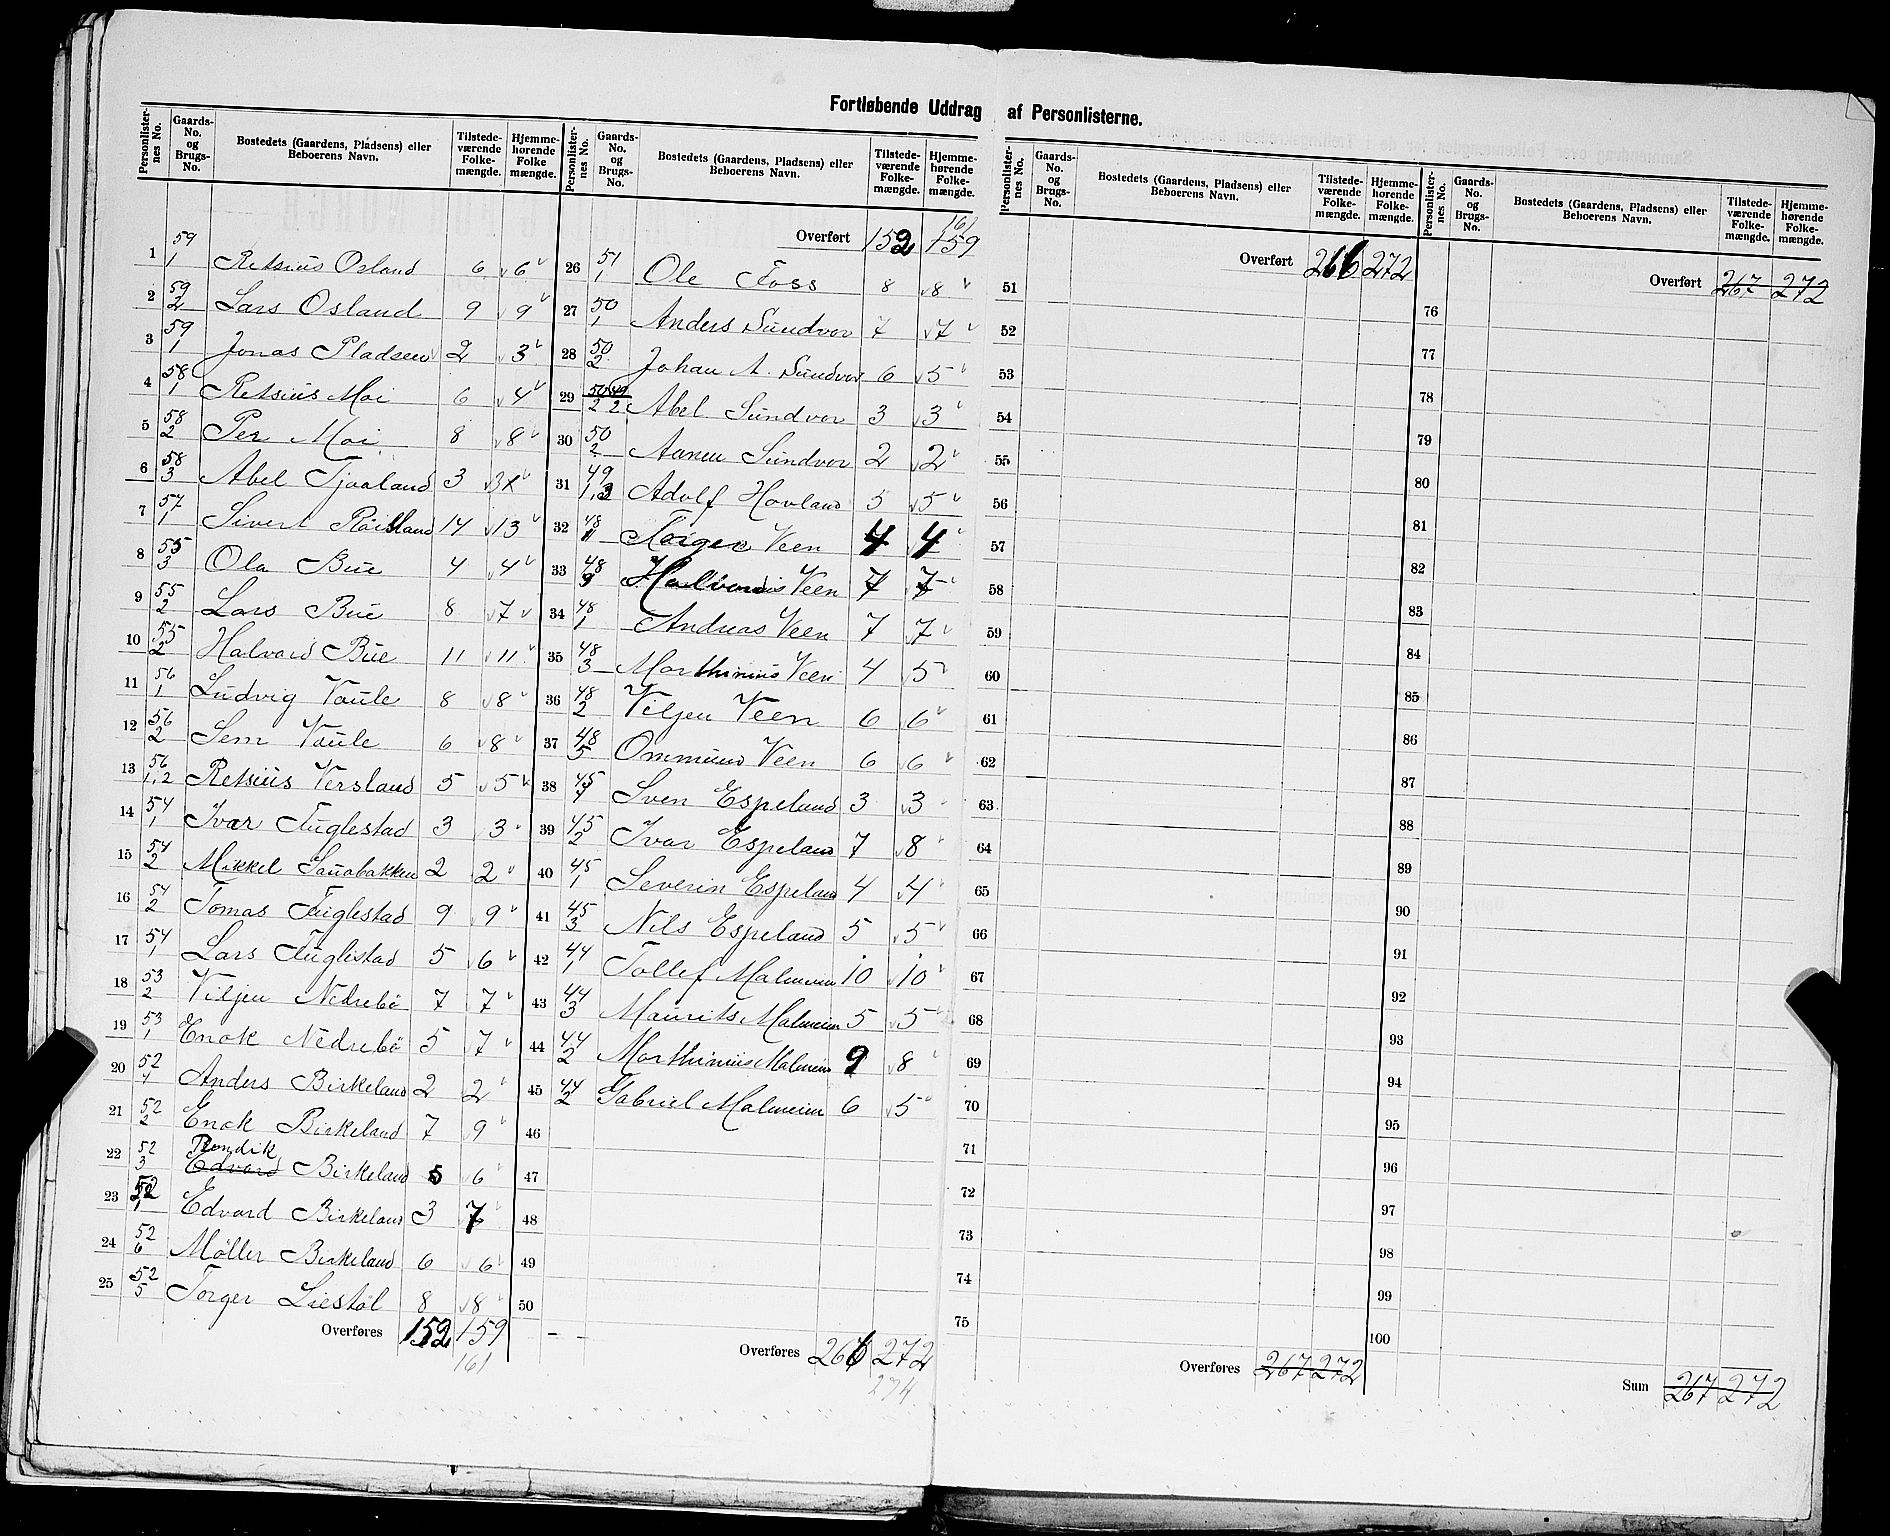 Fortløbende Uddrag af Personlisterne.
Personlister-nes No. | Gaards-No. og Brugs-No. | Bostedets (Gaardens, Pladsens) eller Beboerens Navn. | Tilstede-værende Folke-mængde. | Hjemme-hørende Folke mængde.
1 59/1 Retsius Osland 6 6
2 59/2 Lars Osland 9 9
3 59/1 Jonas Pladsen 2 3
4 58/1 Retsius Moi 6 4
5 58/2 Per Moi 8 8
6 58/3 Abel Tjoaland 3 3
7 57/1 Sivert Röisland 14 13
8 55/3 Ola Bue 4 4
9 55/2 Lars Bue 8 7
10 55/2 Halvard Bue 11 11
11 56/1 Ludvig Vaule 8 8
12 56/2 Sem Vaule 6 8
13 56/1,2 Retsius Versland 5 5
14 54/1 Ivar Fuglestad 3 3
15 54/2 Mikkel Sauabakken 2 2
16 54/2 Tomas Fuglestad 9 9
17 54/1 Lars Fuglestad 5 6
18 53/2 Viljen Nedrebö 7 7
19 53/1 Enok Nedrebö 5 7
20 52/1 Anders Birkeland 2 2
21 52/2 Enok Birkeland 7 9
22 52/3 Rendik Edvard Birkeland 5 6
23 52/1 Edvard Birkeland 3 7
24 52/6 Møller Birkeland 6 6
25 52/5 Torger Liestøl 8 8
Overføres 152 159
161
Personlister-nes No. | Gaards-No. og Brugs-No. | Bostedets (Gaardens, Pladsens) eller Beboerens Navn. | Tilstede-værende Folke-mængde. | Hjemme-hørende Folke-mængde.
161
Overført 152 159
26 51/1 Ole Foss 8 8
27 50/1 Anders Sundvor 7 7
28 50/2 Johan A. Sundvor 6 5
29 50/2 49/2 Abel Sundvor 3 3
30 50/2 Aanen Sundvor 2 2
31 49/1,3 Adolf Hovland 5 5
32 48/11 Torger Veen 4 4
33 48/9 Halvardus Veen 7 7
34 48/1 Andreas Veen 7 7
35 48/3 Morthinius Veen 4 5
36 48/2 Viljen Veen 6 6
37 48/5 Ommund Veen 6 6
38 45/7 Sven Espeland 3 3
39 45/2 Ivar Espeland 7 8
40 45/1 Severin Espeland 4 4
41 45/3 Nils Espeland 5 5
42 44/1 Tollef Malmeim 10 10
43 44/3 Maurits Malmeim 5 5
44 44/2 Morthinius Malmeim 9 8
45 44/2 Gabriel Malmeim 6 5
46
47
48
49
50
Overføres 266 272
274
Personlister-nes No. | Gaards-No. og Brugs-No. | Bostedets (Gaardens, Pladsens) eller Beboerens Navn. | Tilstede-værende Folke-mængde. | Hjemme-hørende Folke-mængde.
Overført 266 272
51
52
53
54
55
56
57
58
59
60
61
62
63
64
65
66
67
68
69
70
71
72
73
74
75
Overføres 267 272
Personlister-nes No. | Gaards-No. og Brugs-No. | Bostedets (Gaardens, Pladsens) eller Beboerens Navn. | Tilstede-værende Folke-mængde. | Hjemme-hørende Folke-mængde.
Overført 267 272
76
77
78
79
80
81
82
83
84
85
86
87
88
89
90
91
92
93
94
95
96
97
98
99
100
Sum 267 272